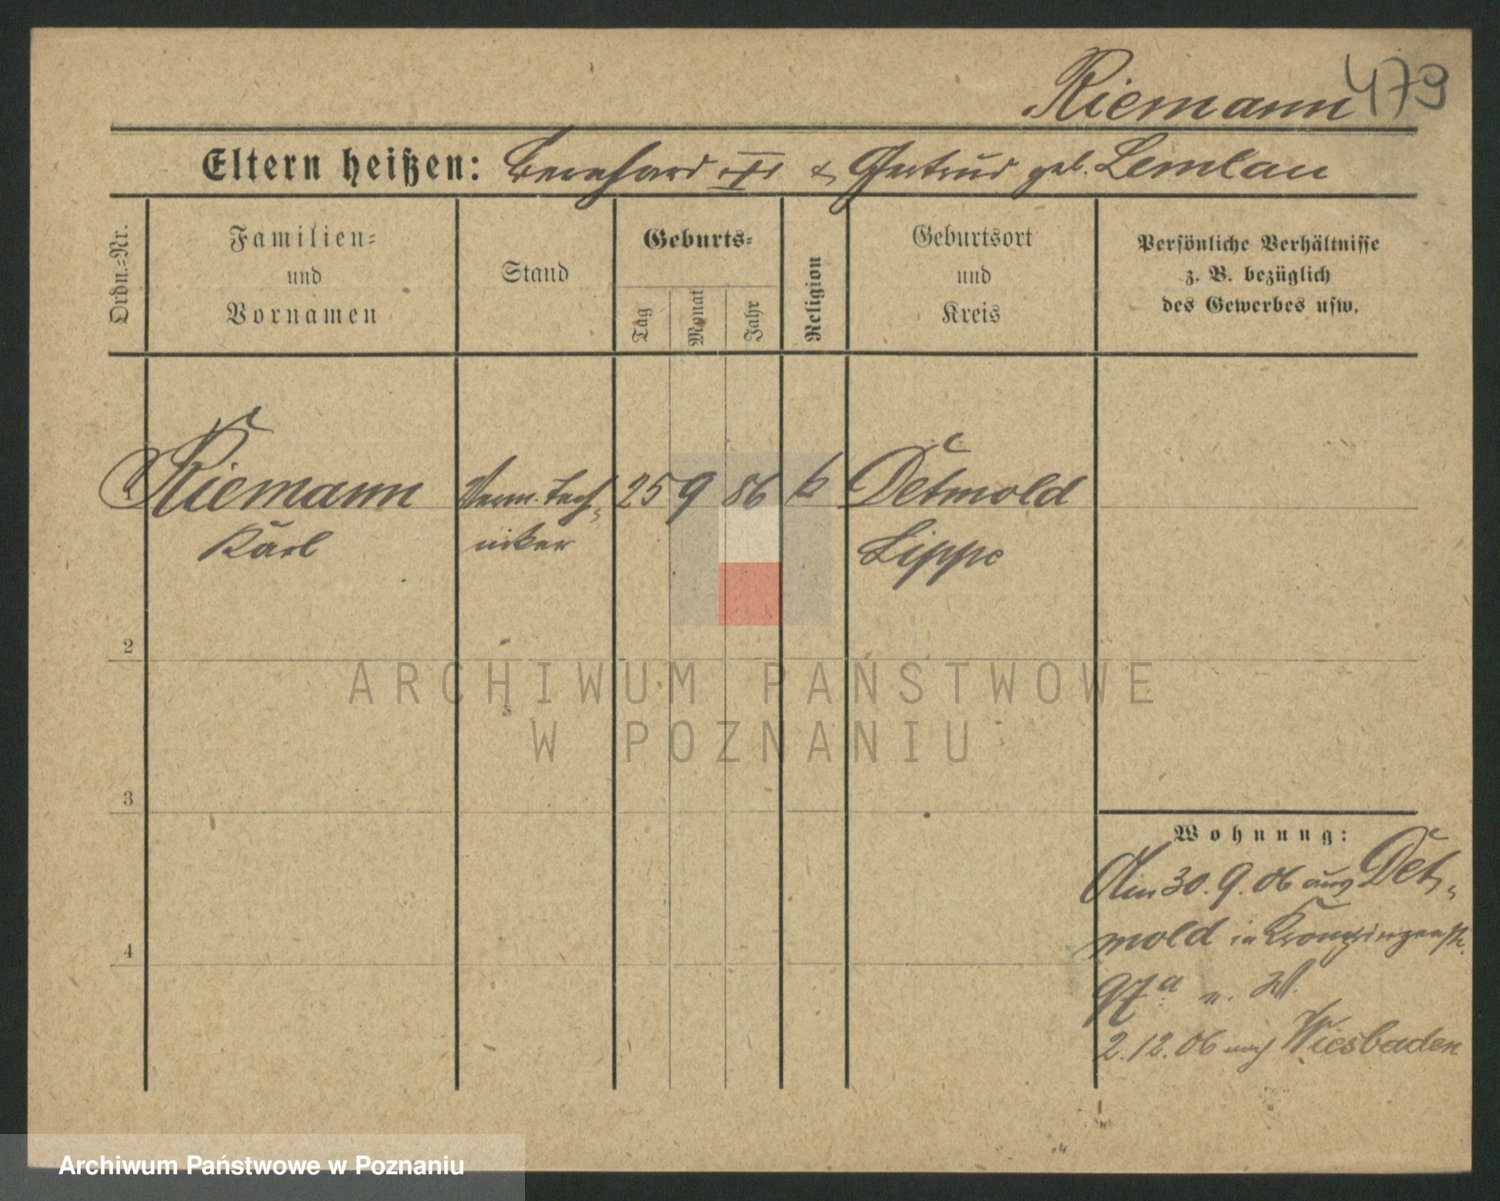 Riemann 479
Eltern heißen: Bernhard R & Gertrud geb. Lemlau
Ordn.-Nr.
Familien-
und
Vornamen
Stand
Geburts-
Tag
Monat
Jahr
Religion
Geburtsort
und
Kreis
Persönliche Verhältnisse
z. B. bezüglich
des Gewerbes usw.
Riemann Verm. tech- 25 9 86 k Detmold
Karl niker Lippe
2
3
4
ARCHIWUM PAŃSTWOWE
W POZNANIU
Wohnung:
Am 30.9.06 aus Det-
mold in Kronprinzenstr.
97a n. W.
2.12.06 nach Wiesbaden
Archiwum Państwowe w Poznaniu